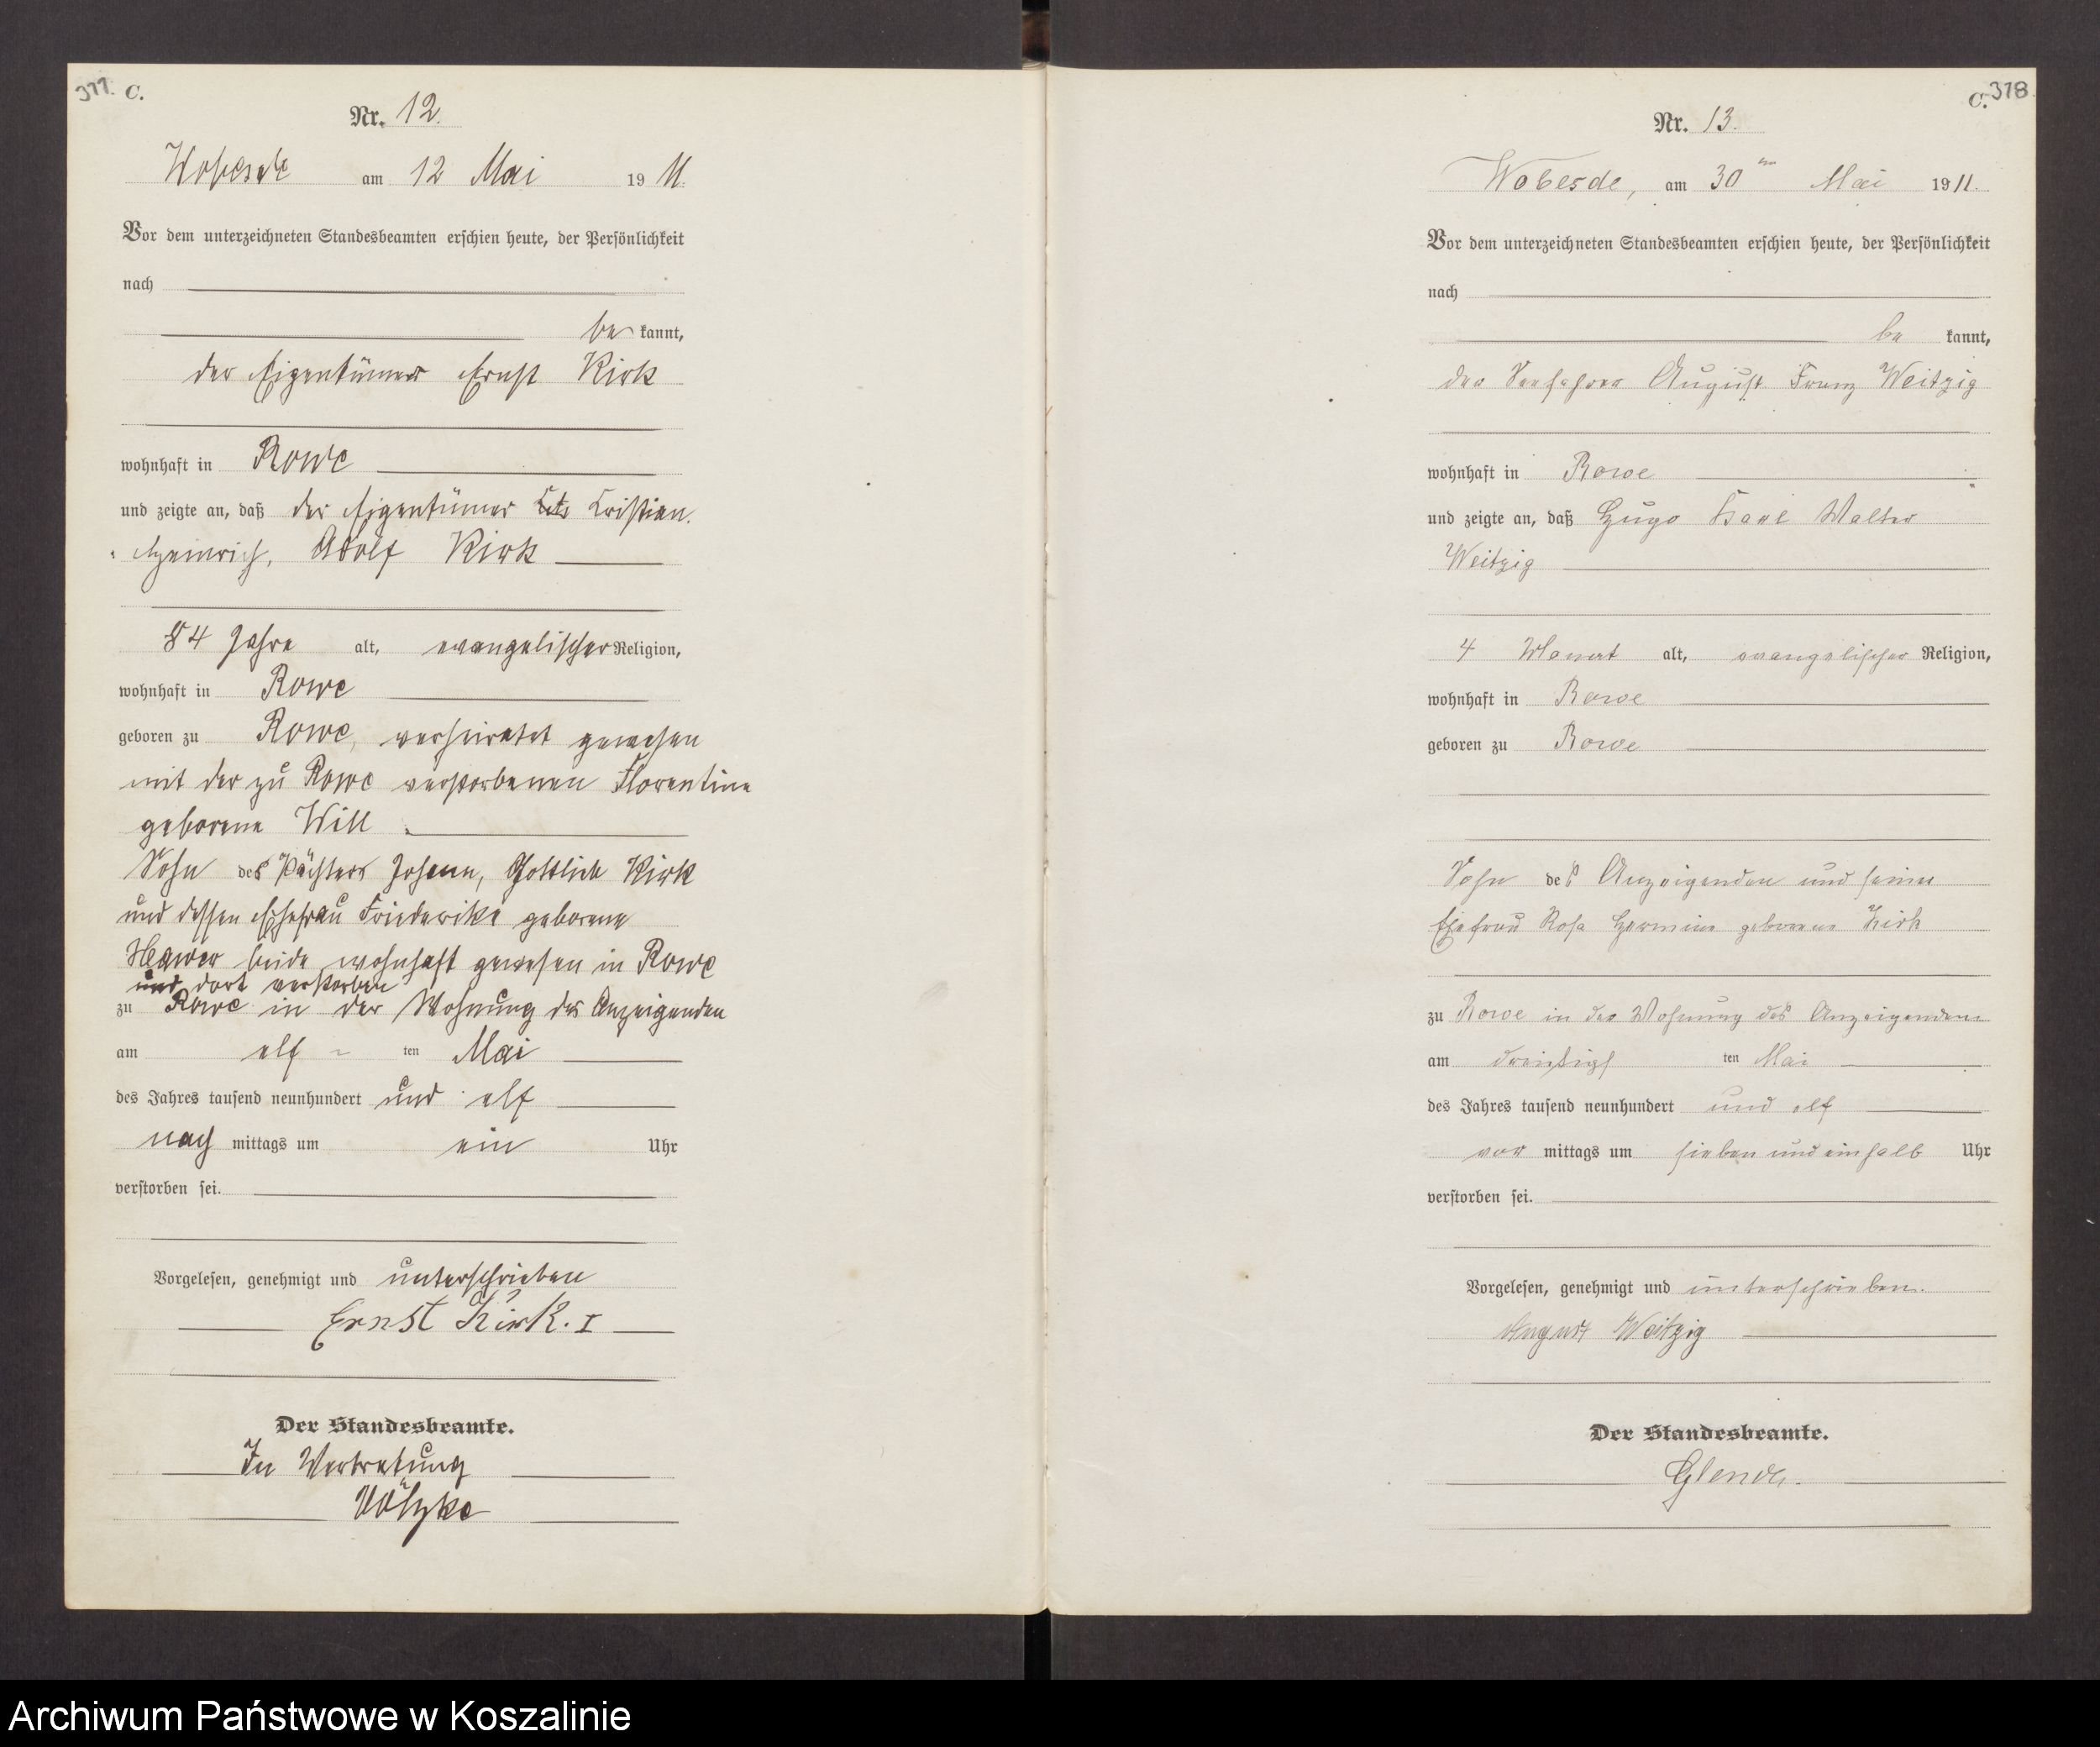 377. C.
Nr. 12.
Wobesde am 12 Mai 1911.
Vor dem unterzeichneten Standesbeamten erschien heute, der Persönlichkeit
nach
be kannt,
der Eigentümer Ernst Kirk
wohnhaft in Rowe
und zeigte an, daß der Eigentümer Cristian.
Heinrich, Adolf Kirk
84 Jahre alt, evangelischer Religion,
wohnhaft in Rowe
geboren zu Rowe, verheiratet gewesen
mit der zu Rowe verstorbenen Florentine
geborene Will
Sohn des Pächters Johann, Gottlieb Kirk
und dessen Ehefrau Friederike geborene
beide wohnhaft gewesen in Rowe
und dort verstorben
zu Rowe in der Wohnung des Anzeigenden
am elf ten Mai
des Jahres tausend neunhundert und elf
nach mittags um ein Uhr
verstorben sei.
Vorgelesen, genehmigt und unterschrieben
Ernst Kirk. I
Der Standesbeamte.
In Vertretung
Völzke
C. 378
Nr. 13.
Wobesde, am 30ten Mai 1911.
Vor dem unterzeichneten Standesbeamten erschien heute, der Persönlichkeit
nach
be kannt,
der Seefahrer August Franz Weitzig
wohnhaft in Rowe
und zeigte an, daß Hugo Karl Walter
Weitzig
4 Monat alt, evangelischer Religion,
wohnhaft in Rowe
geboren zu Rowe
Sohn des Anzeigenden und seiner
Ehefrau Rosa Hermine geborene Kirk
zu Rowe in der Wohnung des Anzeigenden
am dreißigs ten Mai
des Jahres tausend neunhundert und elf
vor mittags um sieben und einhalb Uhr
verstorben sei.
Vorgelesen, genehmigt und unterschrieben.
August Weitzig
Der Standesbeamte.
Archiwum Państwowe w Koszalinie